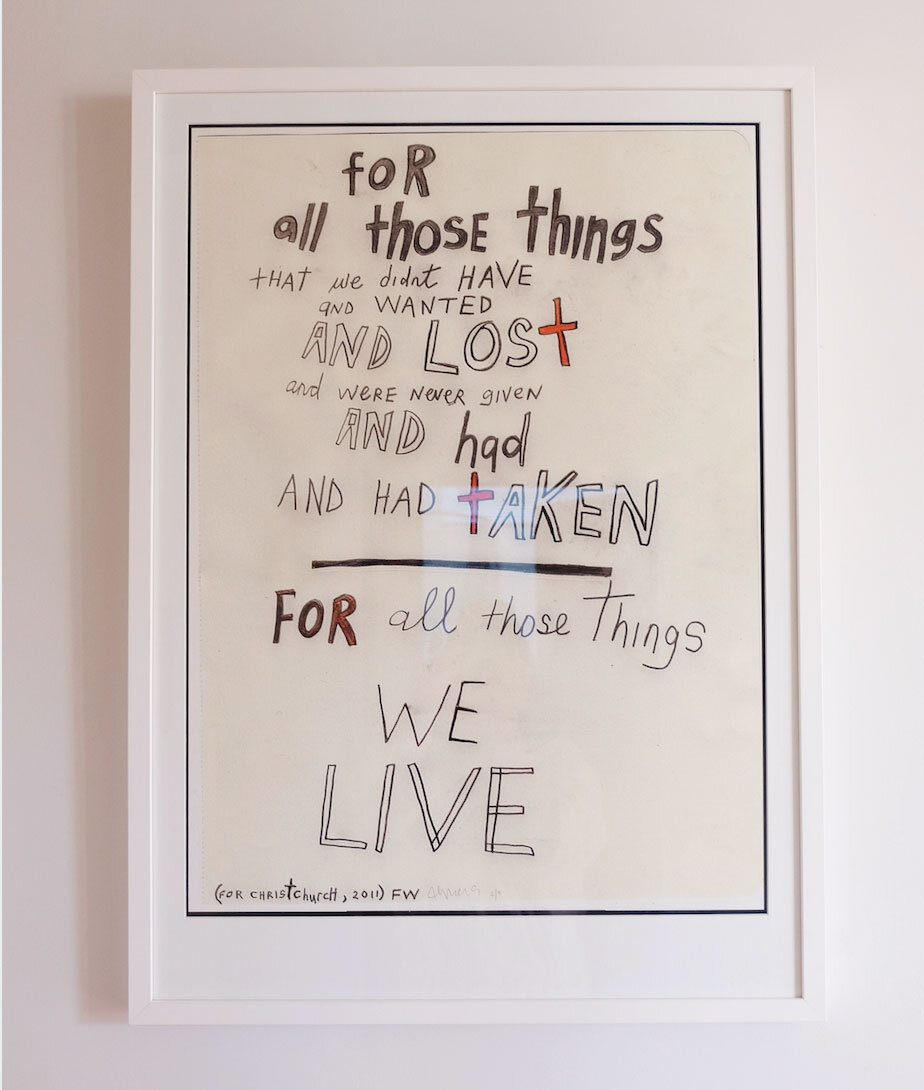 foR
all thosE things
tHAT we didnt HAVE
aND WANTED
AND LOSt
and wERE NEVER giVEN
AND had
AND HAD tAKEN
FOR all those Things
WE
LIVE
(FOR CHRIStchurcH, 2011) FW